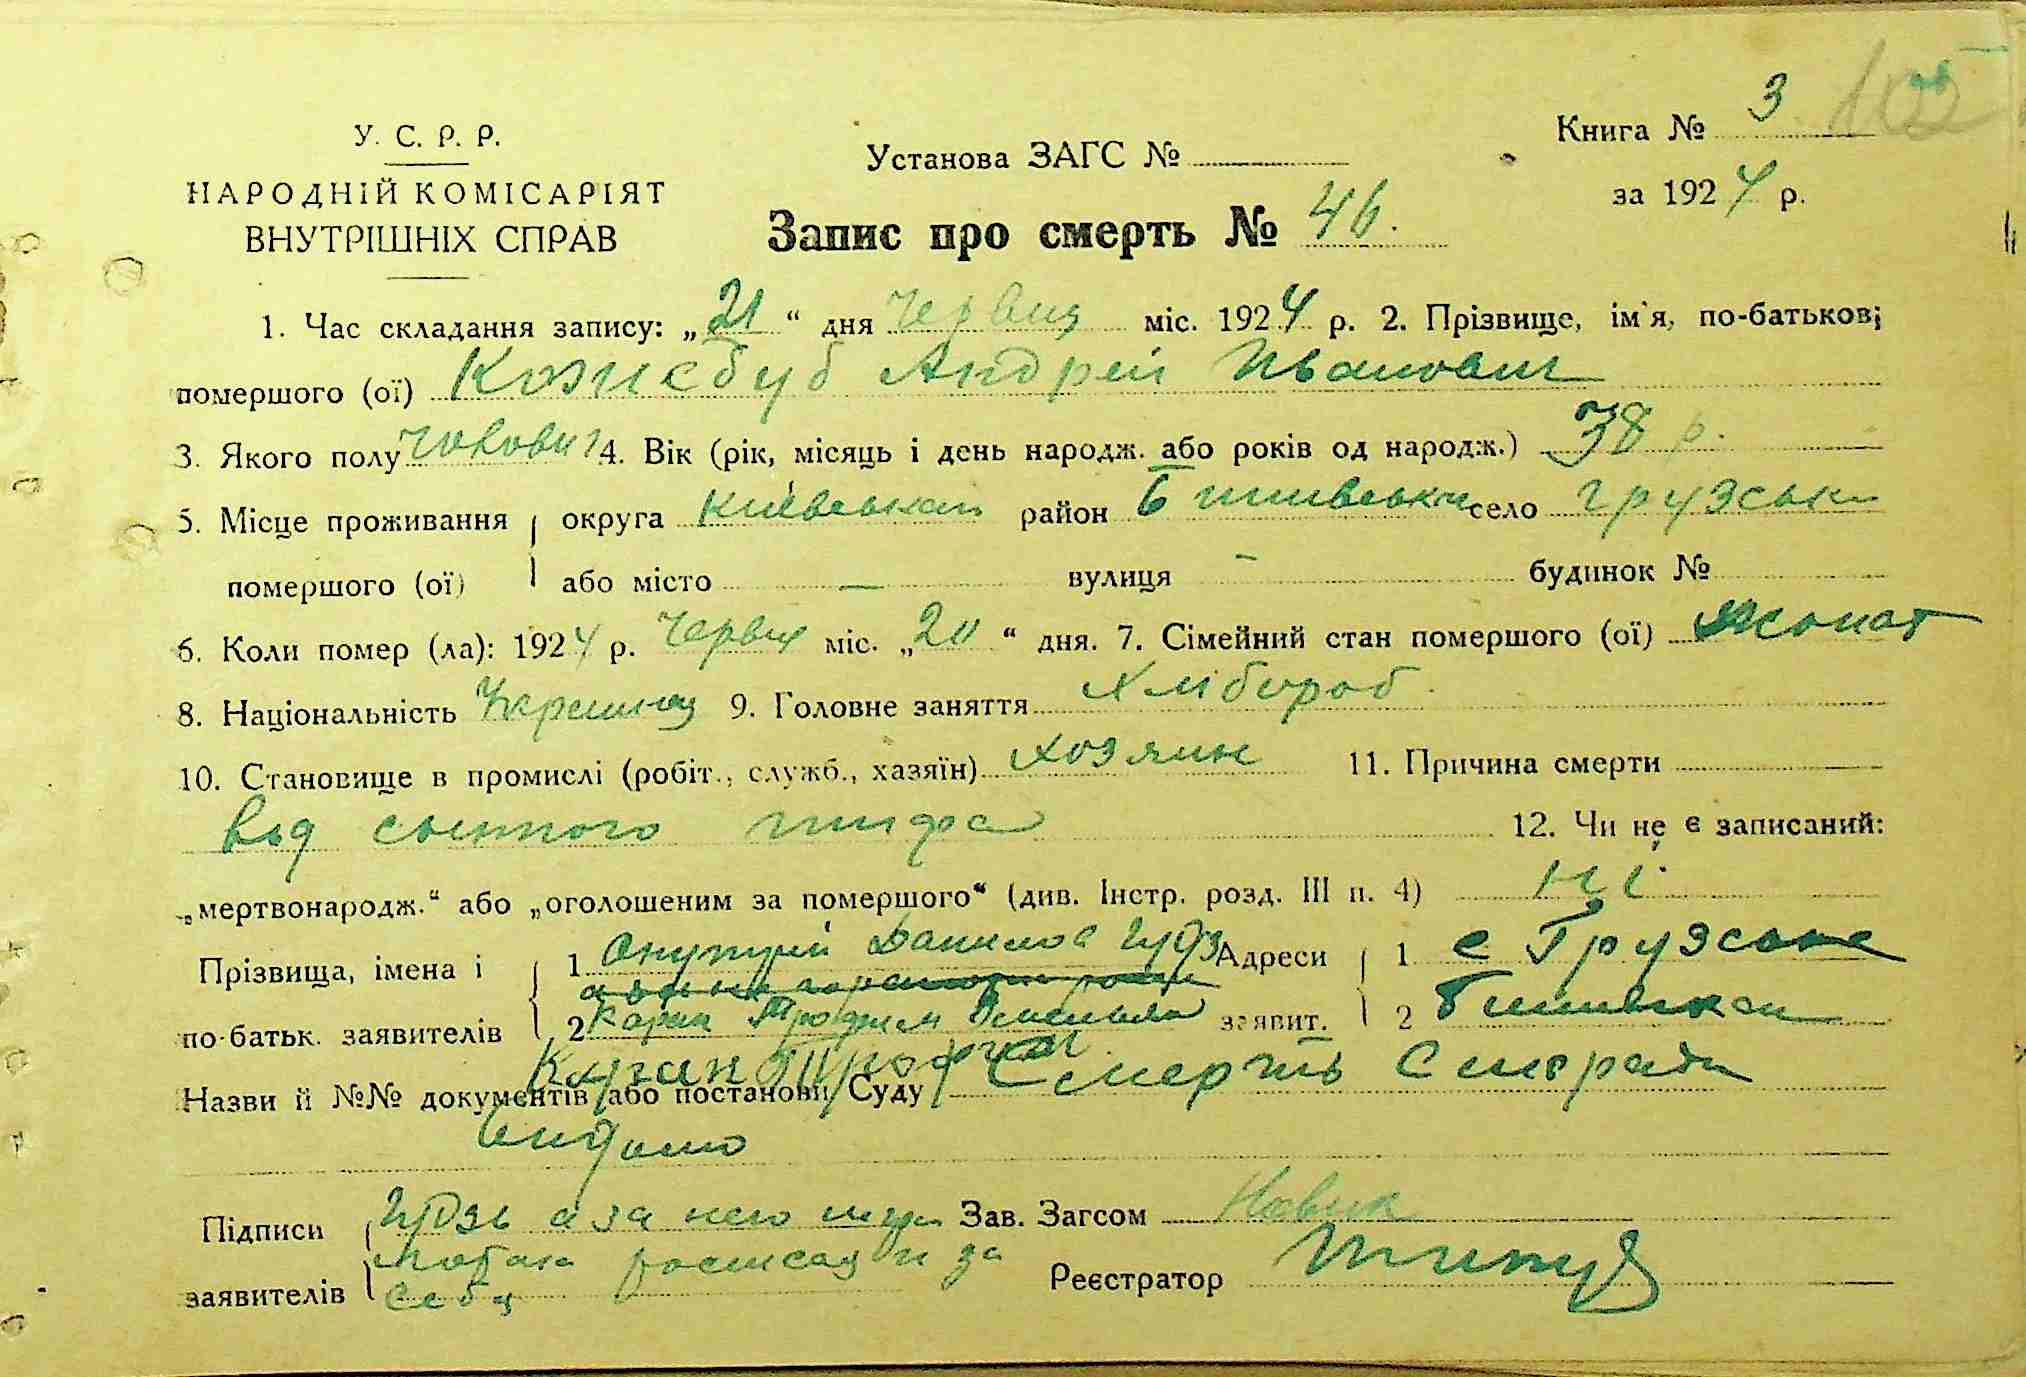 Книга № 3
У. С. Р. Р.
Установа ЗАГС №
НАРОДНІЙ КОМІСАРІЯТ
за 1924 р.
ВНУТРІШНІХ СПРАВ
Запис про смерть № 46.
1. Час складання запису: „21“ дня Червця міс. 1924 р. 2. Прізвище, ім'я, по-батькові
помершого (ої) Андрей Иванович
3. Якого полу 4. Вік (рік, місяць і день народж. або років од народж.) 38 р.
5. Місце проживання округа Київська район село Грузське
помершого (ої) або місто — вулиця — будинок №
6. Коли помер (ла): 1924 р. Червця міс. „20“ дня. 7. Сімейний стан помершого (ої) жонат
8. Національність Украинец 9. Головне заняття Хлібороб
10. Становище в промислі (робіт., служб., хазяїн) хозяин 11. Причина смерти
від сыпного тифа 12. Чи не є записаний:
„мертвонародж.“ або „оголошеним за помершого“ (див. Інстр. розд. III п. 4) Ні
Прізвища, імена і 1 Адреси 1 с Грузське
по-батьк. заявителів 2 Трофим заявит. 2
Назви й №№ документів або постанови Суду Смерть
Підписи а за него Зав. Загсом Новик
росписался и за
заявителів себя Реєстратор